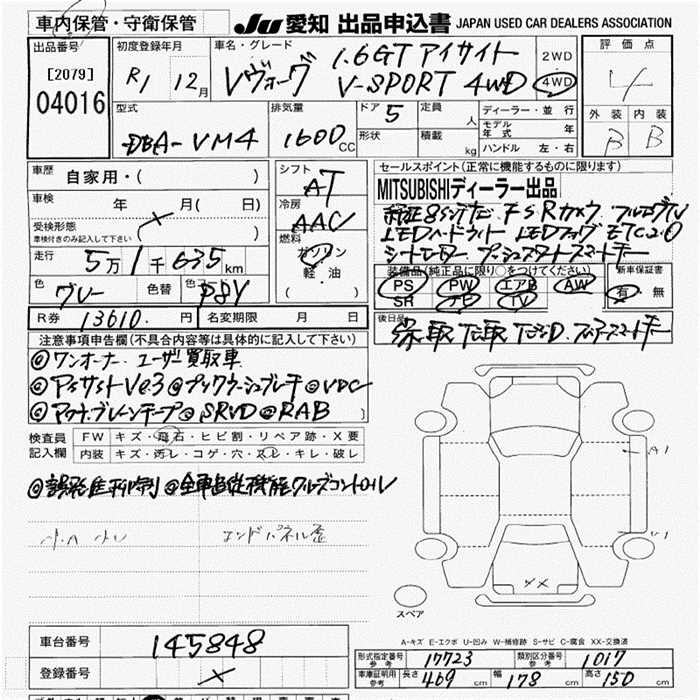 車内保管・守衛保管
JU 愛知 出品申込書 JAPAN USED CAR DEALERS ASSOCIATION
出品番号
[2079]
04016
初度登録年月
R1 12月
車名・グレード
レヴォーグ
1.6GT アイサイト
V-SPORT 4WD
2WD
4WD
評価点
4
外装 内装
B B
型式
DBA-VM4
排気量
1600 CC
ドア 5
形状
定員 人
積載 kg
ディーラー・並行
モデル年式 年
ハンドル 左・右
車歴 自家用・( )
車検 年 月( 日)
受検形態
車検付きのみ記入して下さい
走行 5万1千635km
色 グレー 色替 色 P8Y
R券 13610.円 名変期限 月 日
シフト
AT
冷房
AAC
燃料
ガソリン
軽油
( )
セールスポイント(正常に機能するものに限ります)
MITSUBISHIディーラー出品
純正8インチナビ F S Rカメラ フルセグTV
LEDヘッドライト LEDフォグ ETC2.0
シートヒーター プッシュスタートスマートキー
装備品(純正品に限り○をつけてください)
PS PW エアB AW
SR ナビ TV
新車保証書
有・無
後日品
注意事項申告欄(不具合内容等は具体的に記入して下さい)
◎ワンオーナー ユーザー買取車
◎アイサイトVer.3◎プリクラッシュブレーキ◎VDC
◎アクティブレーンキープ◎SRVD◎RAB
検査員
記入欄
FW キズ・飛石・ヒビ割・リペア跡・X要
内装 キズ・汚レ・コゲ・穴・スレ・キレ・破レ
◎誤発進抑制◎全車速追従機能クルーズコントロール
小A 小U エンドパネル歪
A1
U1
スペア
A-キズ E-エクボ U-凹み W-補修跡 S-サビ C-腐食 XX-交換済
車台番号 145848
登録番号
形式指定番号 参考 17723 類別区分番号 参考 1017
車庫証明用 参考 長さ 469 cm 幅 178 cm 高さ 150 cm